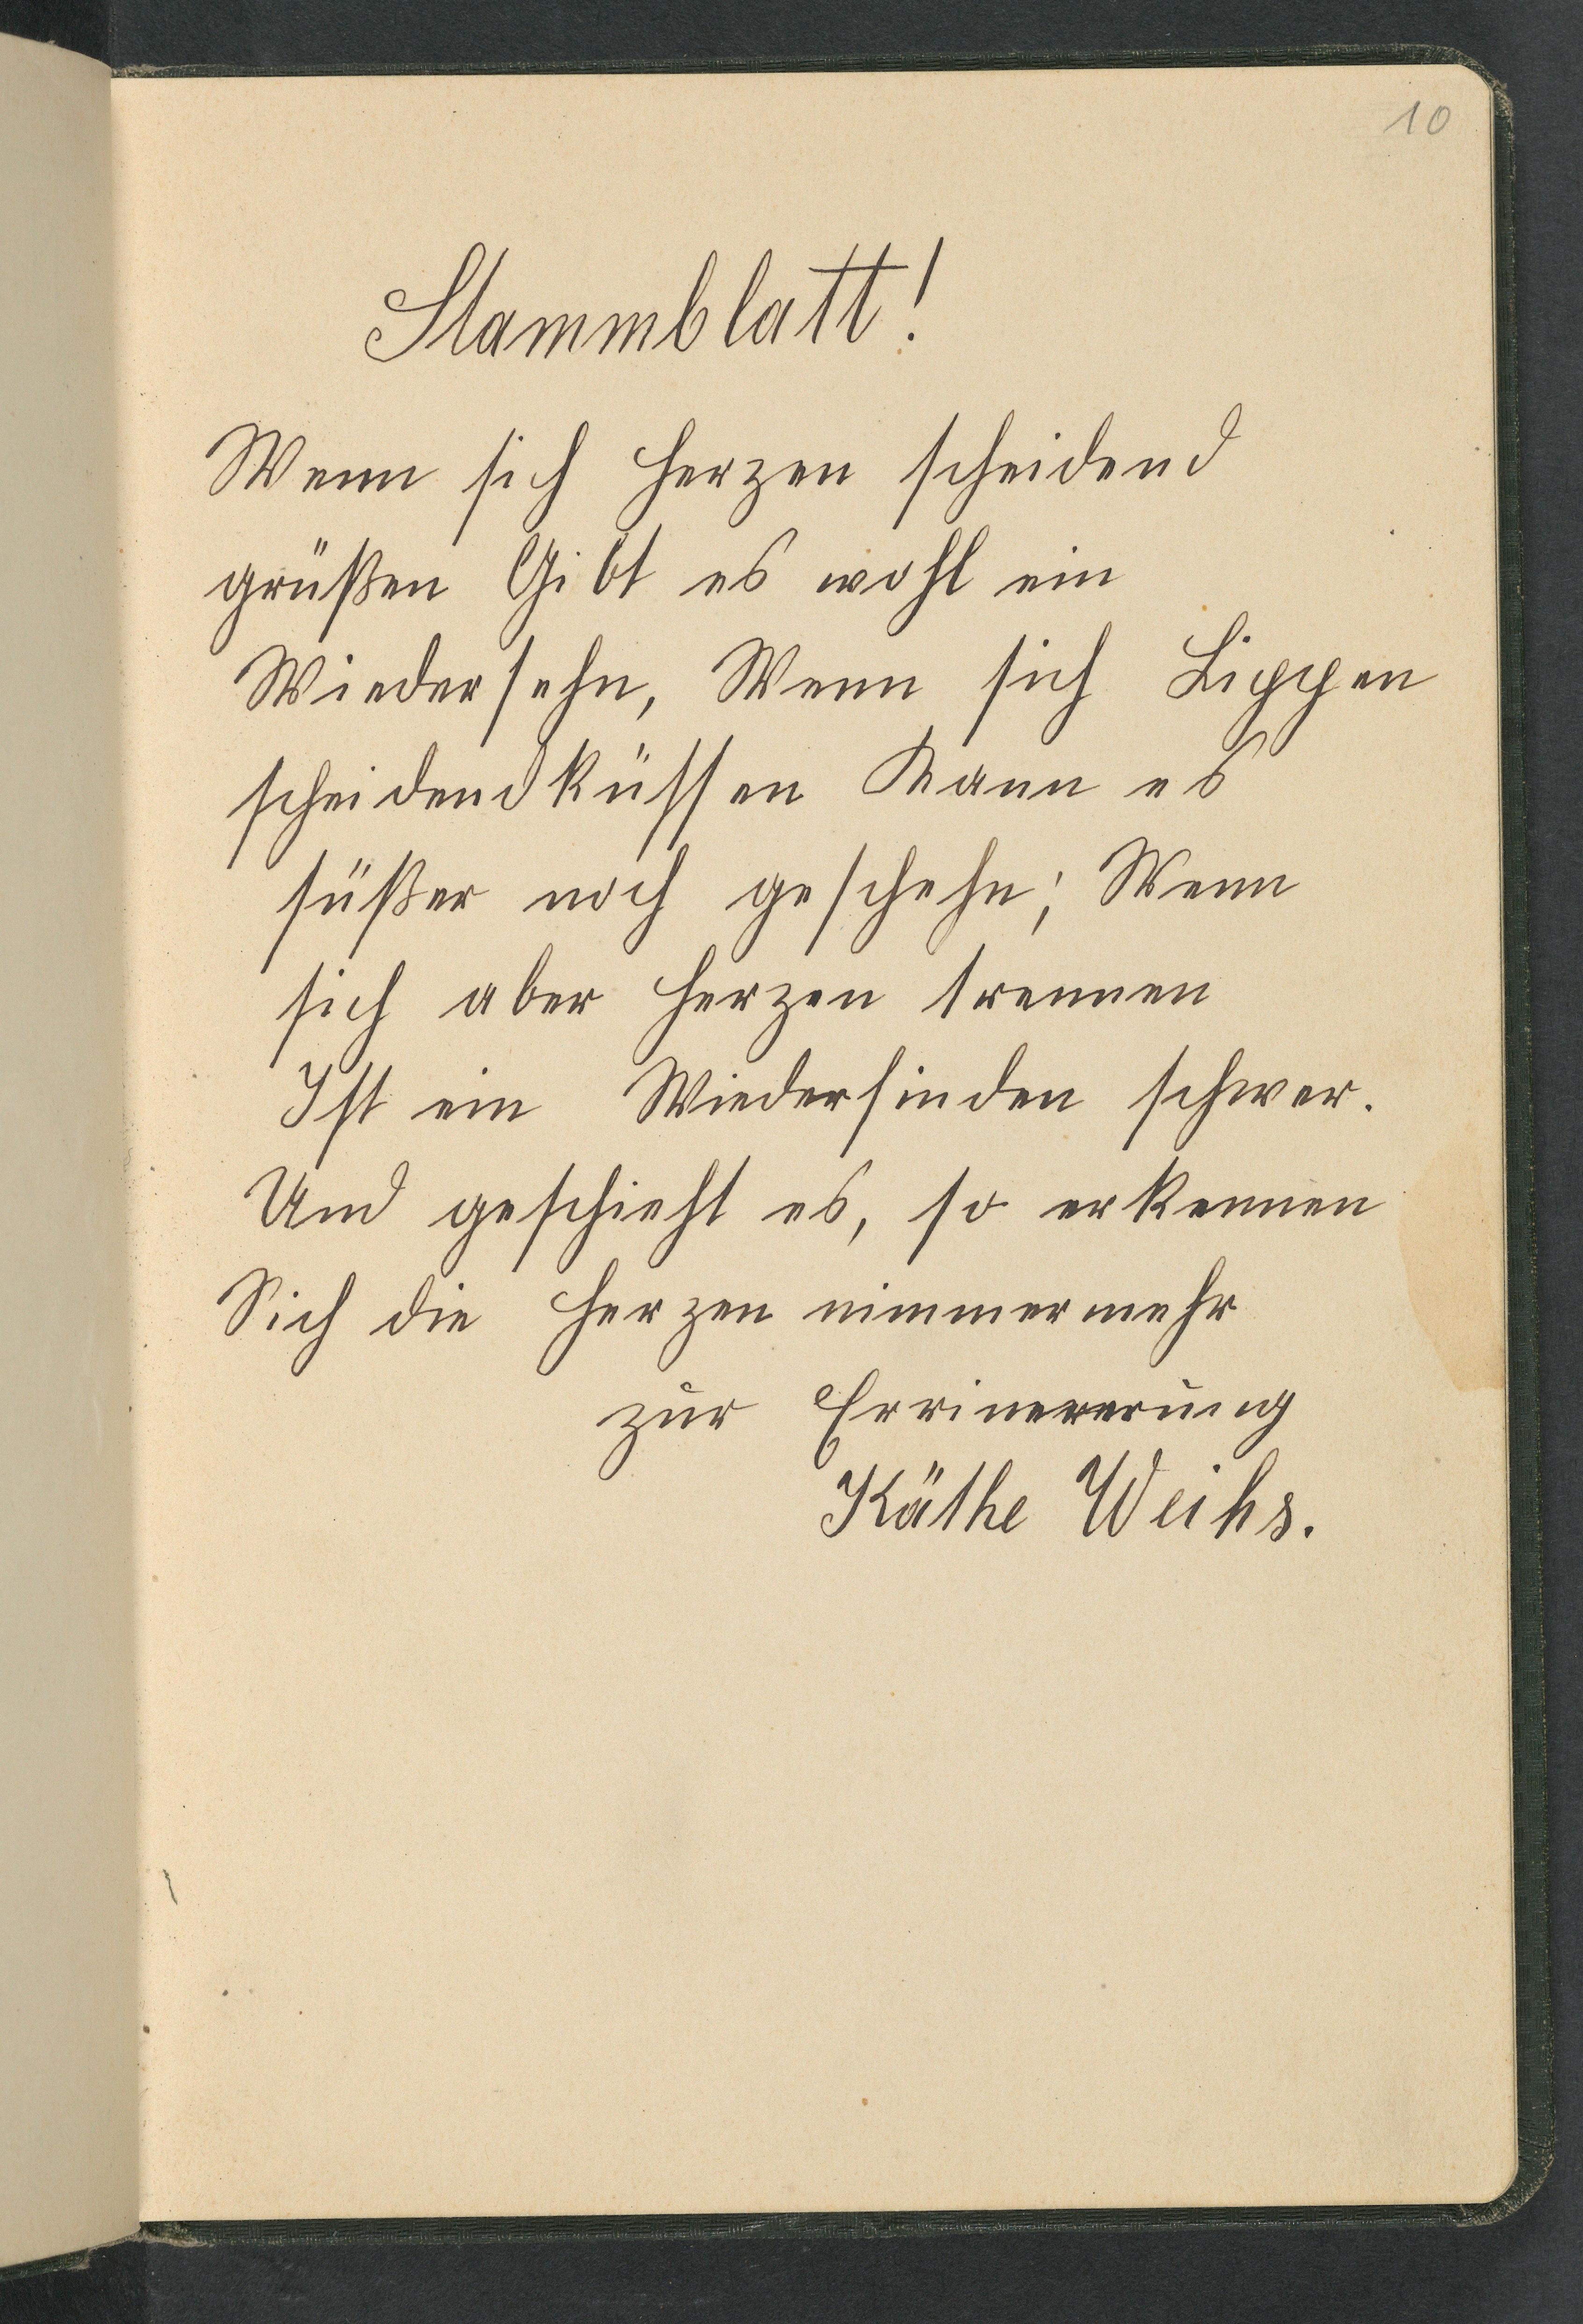 10
Stammblatt!
Wenn sich Herzen scheidend
grüßen Gibt es wohl ein
Wiedersehn, Wenn sich Lippen
scheidend küssen Kann es
süßer noch geschehn; Wenn
sich aber Herzen trennen
Ist ein Wiederfinden schwer.
Und geschieht es, so erkennen
Sich die Herzen nimmermehr
zur Errinererung
Käthe Weihs.